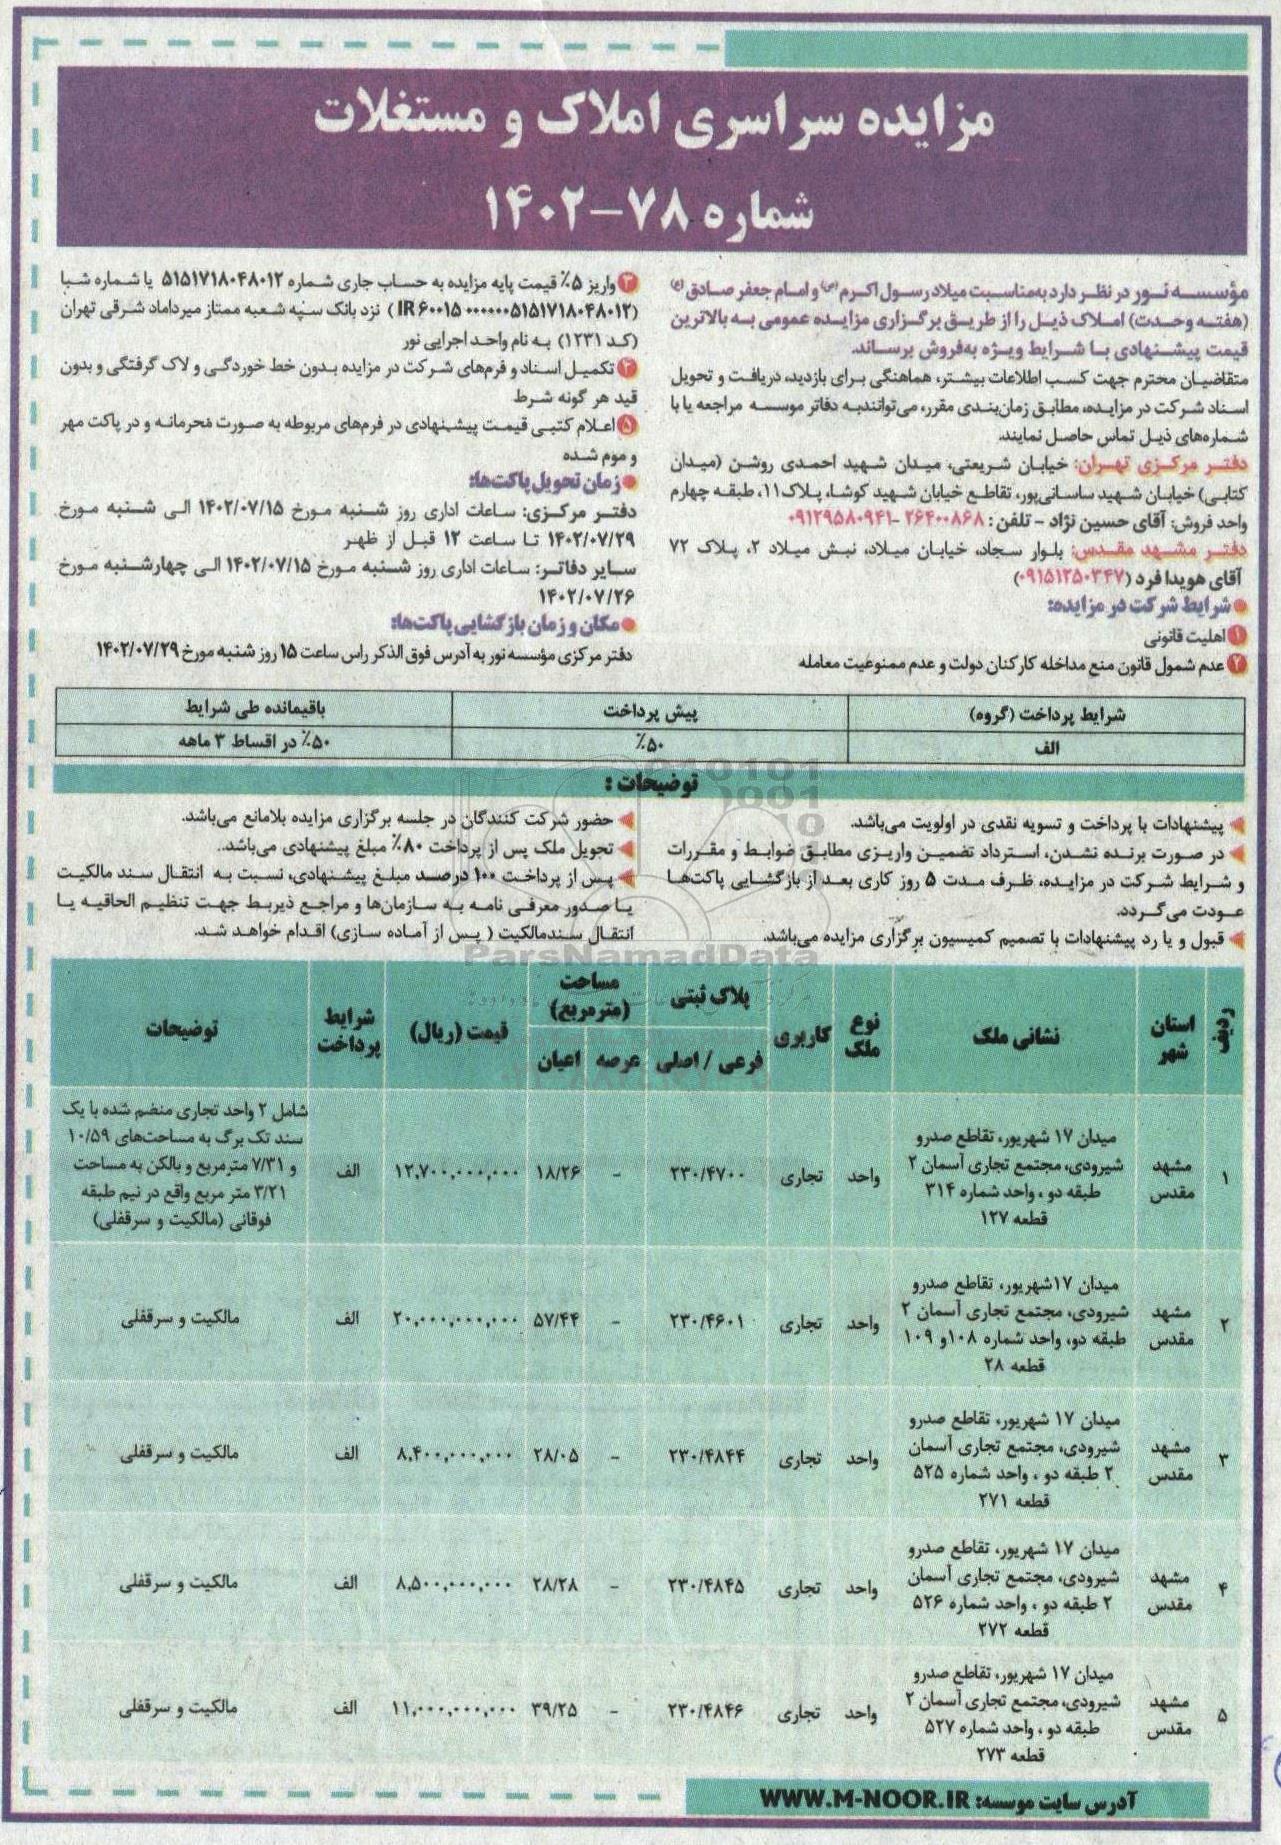 مزایده سراسری املاک و مستغلات
شماره ۷۸-۱۴۰۲
مؤسسه نور در نظر دارد به‌مناسبت میلاد رسول اکرم (ص) و امام جعفر صادق (ع)
(هفته وحدت) املاک ذیل را از طریق برگزاری مزایده عمومی به بالاترین
قیمت پیشنهادی با شرایط ویژه به‌فروش برساند.
متقاضیان محترم جهت کسب اطلاعات بیشتر، هماهنگی برای بازدید، دریافت و تحویل
اسناد شرکت در مزایده، مطابق زمان‌بندی مقرر، می‌توانندبه دفاتر موسسه مراجعه یا با
شماره‌های ذیل تماس حاصل نمایند.
دفتر مرکزی تهران: خیابان شریعتی، میدان شهید احمدی روشن (میدان
کتابی) خیابان شهید ساسانی‌پور، تقاطع خیابان شهید کوشا، پلاک۱۱، طبقه چهارم
واحد فروش: آقای حسین نژاد - تلفن: ۲۶۴۰۰۸۶۸ -۰۹۱۲۹۵۸۰۹۴۱
دفتر مشهد مقدس: بلوار سجاد، خیابان میلاد، نبش میلاد ۲، پلاک ۷۲
آقای هویدا فرد (۰۹۱۵۱۲۵۰۳۴۷)
● شرایط شرکت در مزایده:
۱ اهلیت قانونی
۲ عدم شمول قانون منع مداخله کارکنان دولت و عدم ممنوعیت معامله
۳ واریز ۵٪ قیمت پایه مزایده به حساب جاری شماره ۵۱۵۱۷۱۸۰۴۸۰۱۲ یا شماره شبا
(IR ۶۰۰۱۵۰۰۰۰۰۰۵۱۵۱۷۱۸۰۴۸۰۱۲) نزد بانک سپه شعبه ممتاز میرداماد شرقی تهران
(کد ۱۲۳۱) به نام واحد اجرایی نور
۴ تکمیل اسناد و فرم‌های شرکت در مزایده بدون خط خوردگی و لاک گرفتگی و بدون
قید هر گونه شرط
۵ اعلام کتبی قیمت پیشنهادی در فرم‌های مربوطه به صورت محرمانه و در پاکت مهر
و موم شده
● زمان تحویل پاکت‌ها:
دفتر مرکزی: ساعات اداری روز شنبه مورخ ۱۴۰۲/۰۷/۱۵ الی شنبه مورخ
۱۴۰۲/۰۷/۲۹ تا ساعت ۱۲ قبل از ظهر
سایر دفاتر: ساعات اداری روز شنبه مورخ ۱۴۰۲/۰۷/۱۵ الی چهارشنبه مورخ
۱۴۰۲/۰۷/۲۶
● مکان و زمان بازگشایی پاکت‌ها:
دفتر مرکزی مؤسسه نور به آدرس فوق الذکر راس ساعت ۱۵ روز شنبه مورخ ۱۴۰۲/۰۷/۲۹
شرایط پرداخت (گروه) پیش پرداخت باقیمانده طی شرایط
الف ۵۰٪ ۵۰٪ در اقساط ۳ ماهه
توضیحات :
پیشنهادات با پرداخت و تسویه نقدی در اولویت می‌باشد.
در صورت برنده نشدن، استرداد تضمین واریزی مطابق ضوابط و مقررات
و شرایط شرکت در مزایده، ظرف مدت ۵ روز کاری بعد از بازگشایی پاکت‌ها
عودت می‌گردد.
قبول و یا رد پیشنهادات با تصمیم کمیسیون برگزاری مزایده می‌باشد.
حضور شرکت کنندگان در جلسه برگزاری مزایده بلامانع می‌باشد.
تحویل ملک پس از پرداخت ۸۰٪ مبلغ پیشنهادی می‌باشد.
پس از پرداخت ۱۰۰ درصد مبلغ پیشنهادی، نسبت به انتقال سند مالکیت
یا صدور معرفی نامه به سازمان‌ها و مراجع ذیربط جهت تنظیم الحاقیه یا
انتقال سندمالکیت ( پس از آماده سازی) اقدام خواهد شد.
ParsNamadData
ردیف استان شهر نشانی ملک نوع ملک کاربری پلاک ثبتی فرعی / اصلی مساحت (مترمربع) عرصه اعیان قیمت (ریال) شرایط پرداخت توضیحات
۱ مشهد مقدس میدان ۱۷ شهریور، تقاطع صدرو شیرودی، مجتمع تجاری آسمان ۲ طبقه دو ، واحد شماره ۳۱۴ قطعه ۱۲۷ واحد تجاری ۲۳۰/۴۷۰۰ - ۱۸/۲۶ ۱۲,۷۰۰,۰۰۰,۰۰۰ الف شامل ۲ واحد تجاری منضم شده با یک سند تک برگ به مساحت‌های ۱۰/۵۹ و ۷/۳۱ مترمربع و بالکن به مساحت ۳/۲۱ متر مربع واقع در نیم طبقه فوقانی (مالکیت و سرقفلی)
۲ مشهد مقدس میدان ۱۷شهریور، تقاطع صدرو شیرودی، مجتمع تجاری آسمان ۲ طبقه دو، واحد شماره ۱۰۸و ۱۰۹ قطعه ۲۸ واحد تجاری ۲۳۰/۴۶۰۱ - ۵۷/۴۴ ۲۰,۰۰۰,۰۰۰,۰۰۰ الف مالکیت و سرقفلی
۳ مشهد مقدس میدان ۱۷ شهریور، تقاطع صدرو شیرودی، مجتمع تجاری آسمان ۲ طبقه دو ، واحد شماره ۵۲۵ قطعه ۲۷۱ واحد تجاری ۲۳۰/۴۸۴۴ - ۲۸/۰۵ ۸,۴۰۰,۰۰۰,۰۰۰ الف مالکیت و سرقفلی
۴ مشهد مقدس میدان ۱۷ شهریور، تقاطع صدرو شیرودی، مجتمع تجاری آسمان ۲ طبقه دو ، واحد شماره ۵۲۶ قطعه ۲۷۲ واحد تجاری ۲۳۰/۴۸۴۵ - ۲۸/۲۸ ۸,۵۰۰,۰۰۰,۰۰۰ الف مالکیت و سرقفلی
۵ مشهد مقدس میدان ۱۷ شهریور، تقاطع صدرو شیرودی، مجتمع تجاری آسمان ۲ طبقه دو ، واحد شماره ۵۲۷ قطعه ۲۷۳ واحد تجاری ۲۳۰/۴۸۴۶ - ۳۹/۲۵ ۱۱,۰۰۰,۰۰۰,۰۰۰ الف مالکیت و سرقفلی
آدرس سایت موسسه: WWW.M-NOOR.IR